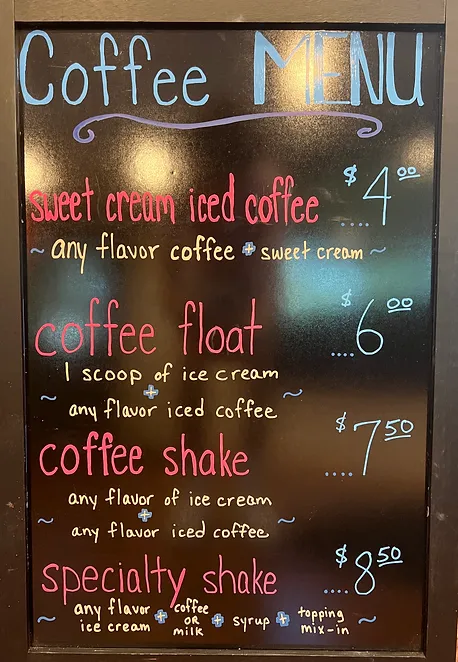 Coffee MENU
sweet cream iced coffee ....$4.00
~ any flavor coffee + sweet cream ~
coffee float ....$6.00
1 scoop of ice cream
~ + ~
any flavor iced coffee
coffee shake ....$7.50
any flavor of ice cream
~ + ~
any flavor iced coffee
specialty shake ....$8.50
~ any flavor ice cream + coffee OR milk + syrup + topping mix-in ~